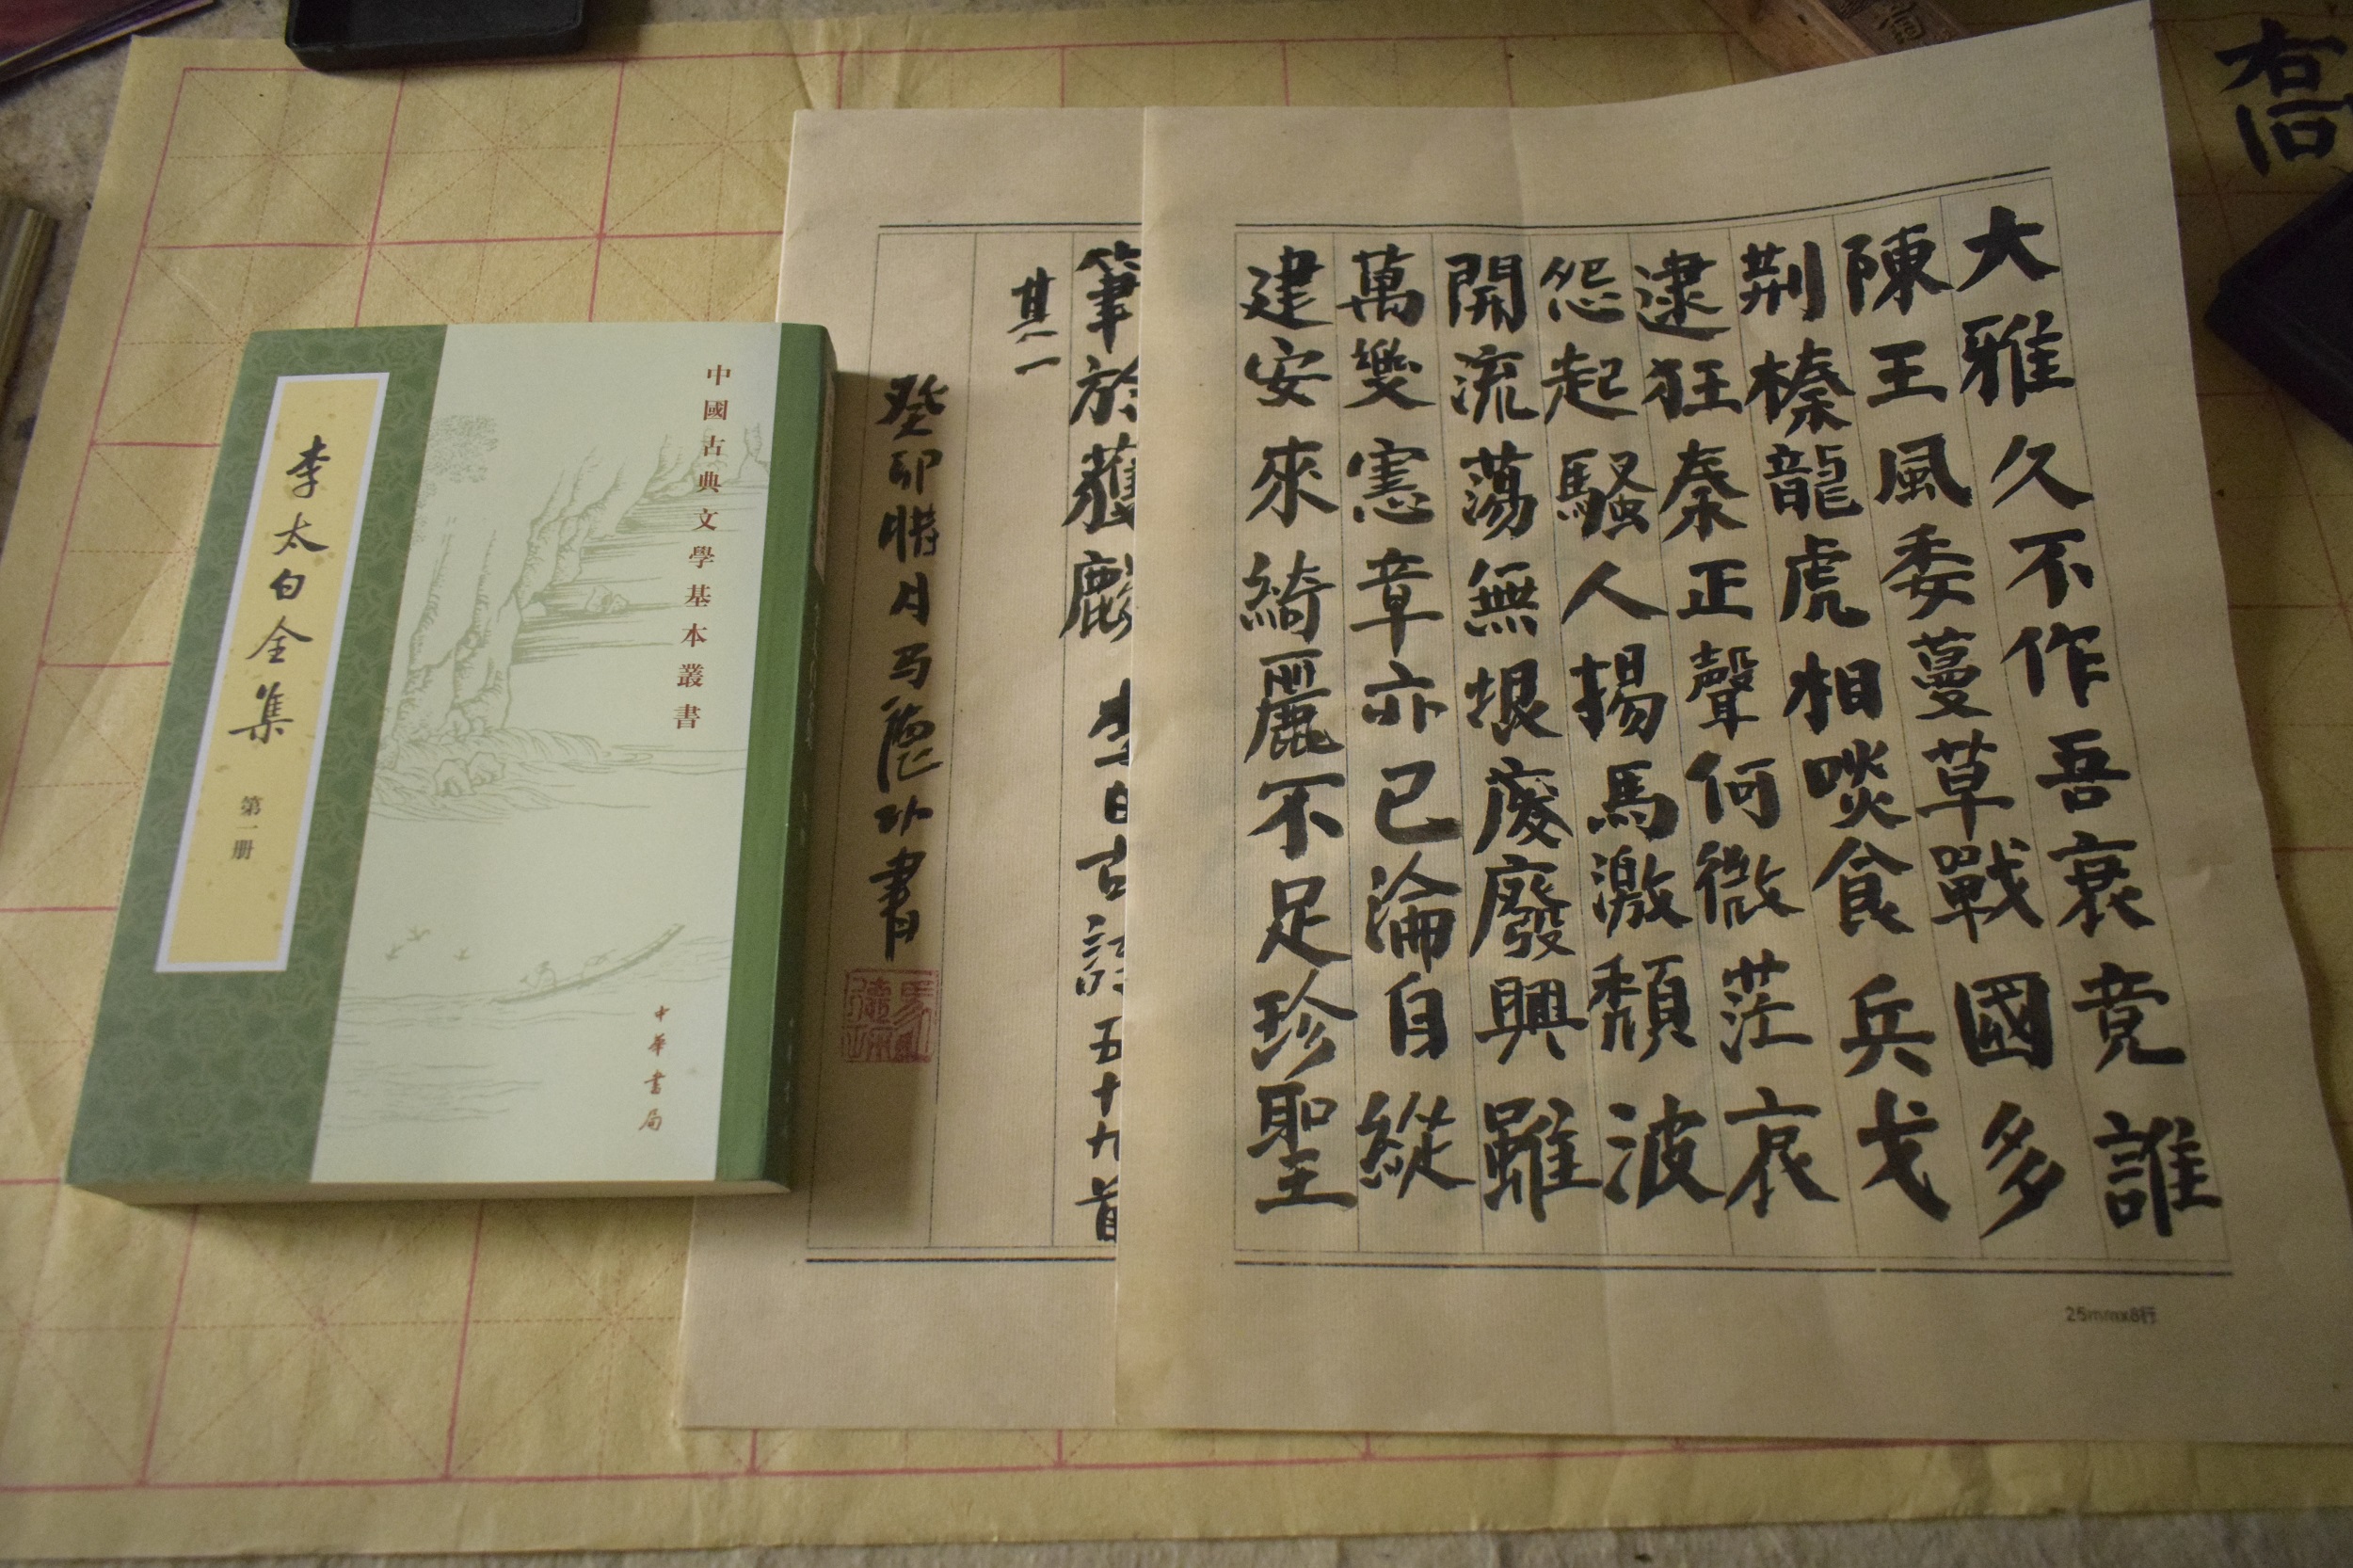 大雅久不作吾衰竟誰
陳王風委蔓草戰國多
荆榛龍虎相啖食兵戈
逮狂秦正聲何微茫哀
怨起騷人揚馬激頹波
開流蕩無垠廢興雖
萬變憲章亦已淪自緃
建安來綺麗不足珍聖
25mmx8行
筆於獲麟 李白古詩五十九首
其一
癸卯腊月马德功書
中國古典文學基本叢書
李太白全集 第一册
中華書局